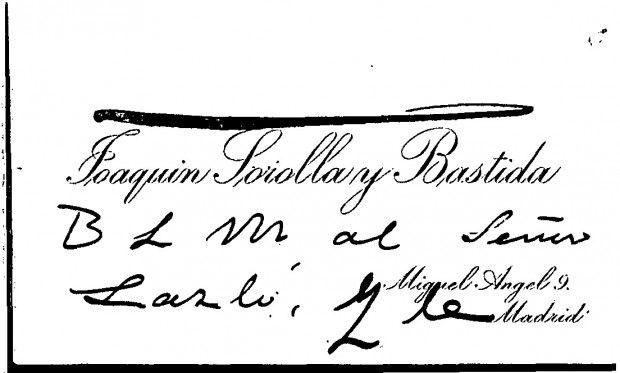 Joaquin Sorolla y Bastida
B L M al Señor
Miguel Angel 9.
Lazló, y le
Madrid